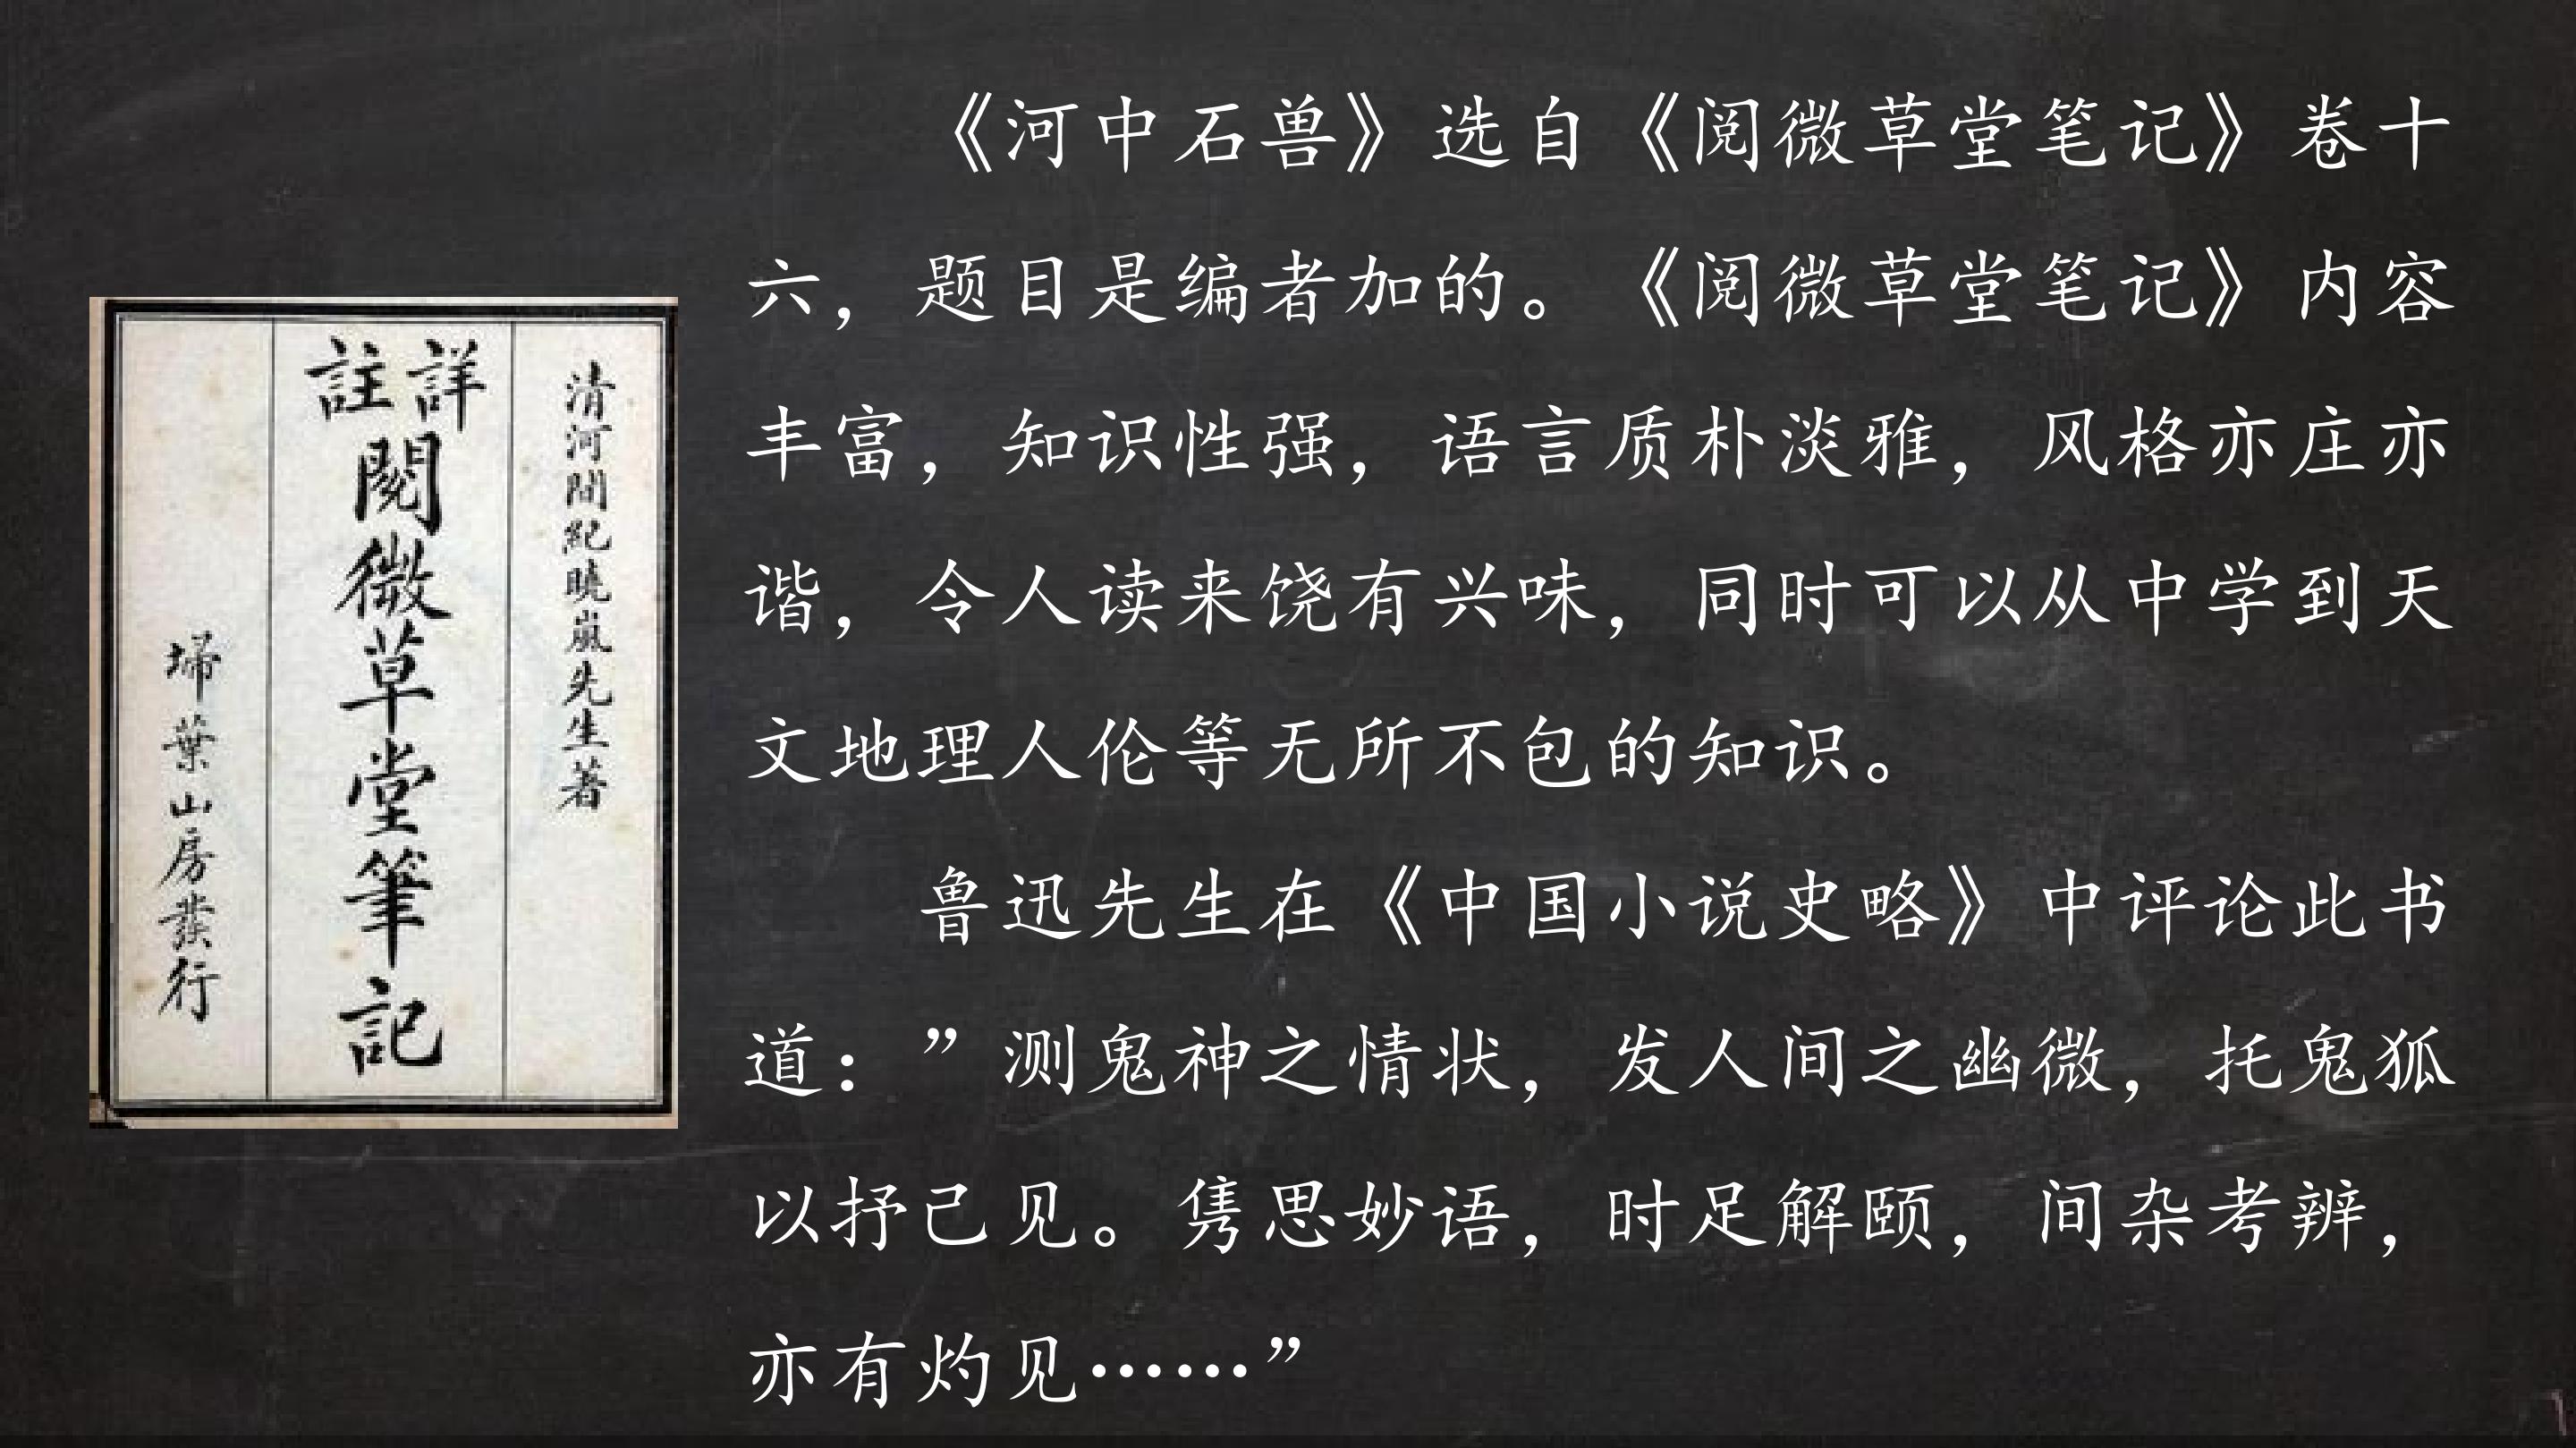 清河間紀曉嵐先生著
詳註
閱微草堂筆記
埽葉山房發行
《河中石兽》选自《阅微草堂笔记》卷十
六，题目是编者加的。《阅微草堂笔记》内容
丰富，知识性强，语言质朴淡雅，风格亦庄亦
谐，令人读来饶有兴味，同时可以从中学到天
文地理人伦等无所不包的知识。
鲁迅先生在《中国小说史略》中评论此书
道：”测鬼神之情状，发人间之幽微，托鬼狐
以抒己见。隽思妙语，时足解颐，间杂考辨，
亦有灼见……”